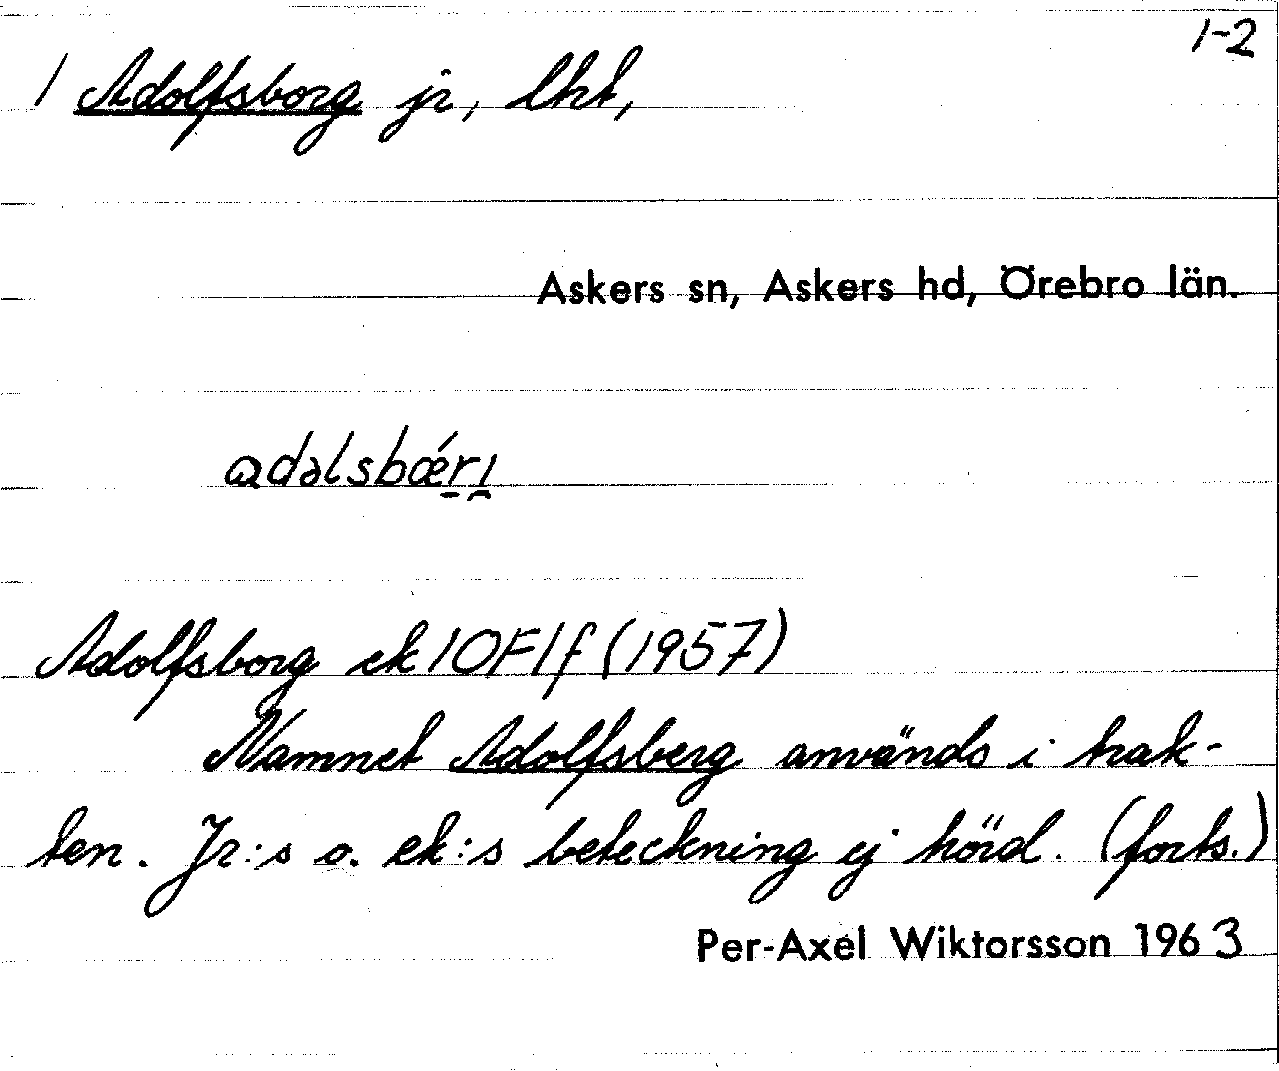 1-2
/ Adolfsborg jr, lht,
Askers sn, Askers hd, Örebro län.
adəlsbǽrı
Adolfsborg ek 10F1f (1957)
Namnet Adolfsberg används i trak-
ten. Jr:s o. ek:s beteckning ej hörd. (forts.)
Per-Axel Wiktorsson 1963